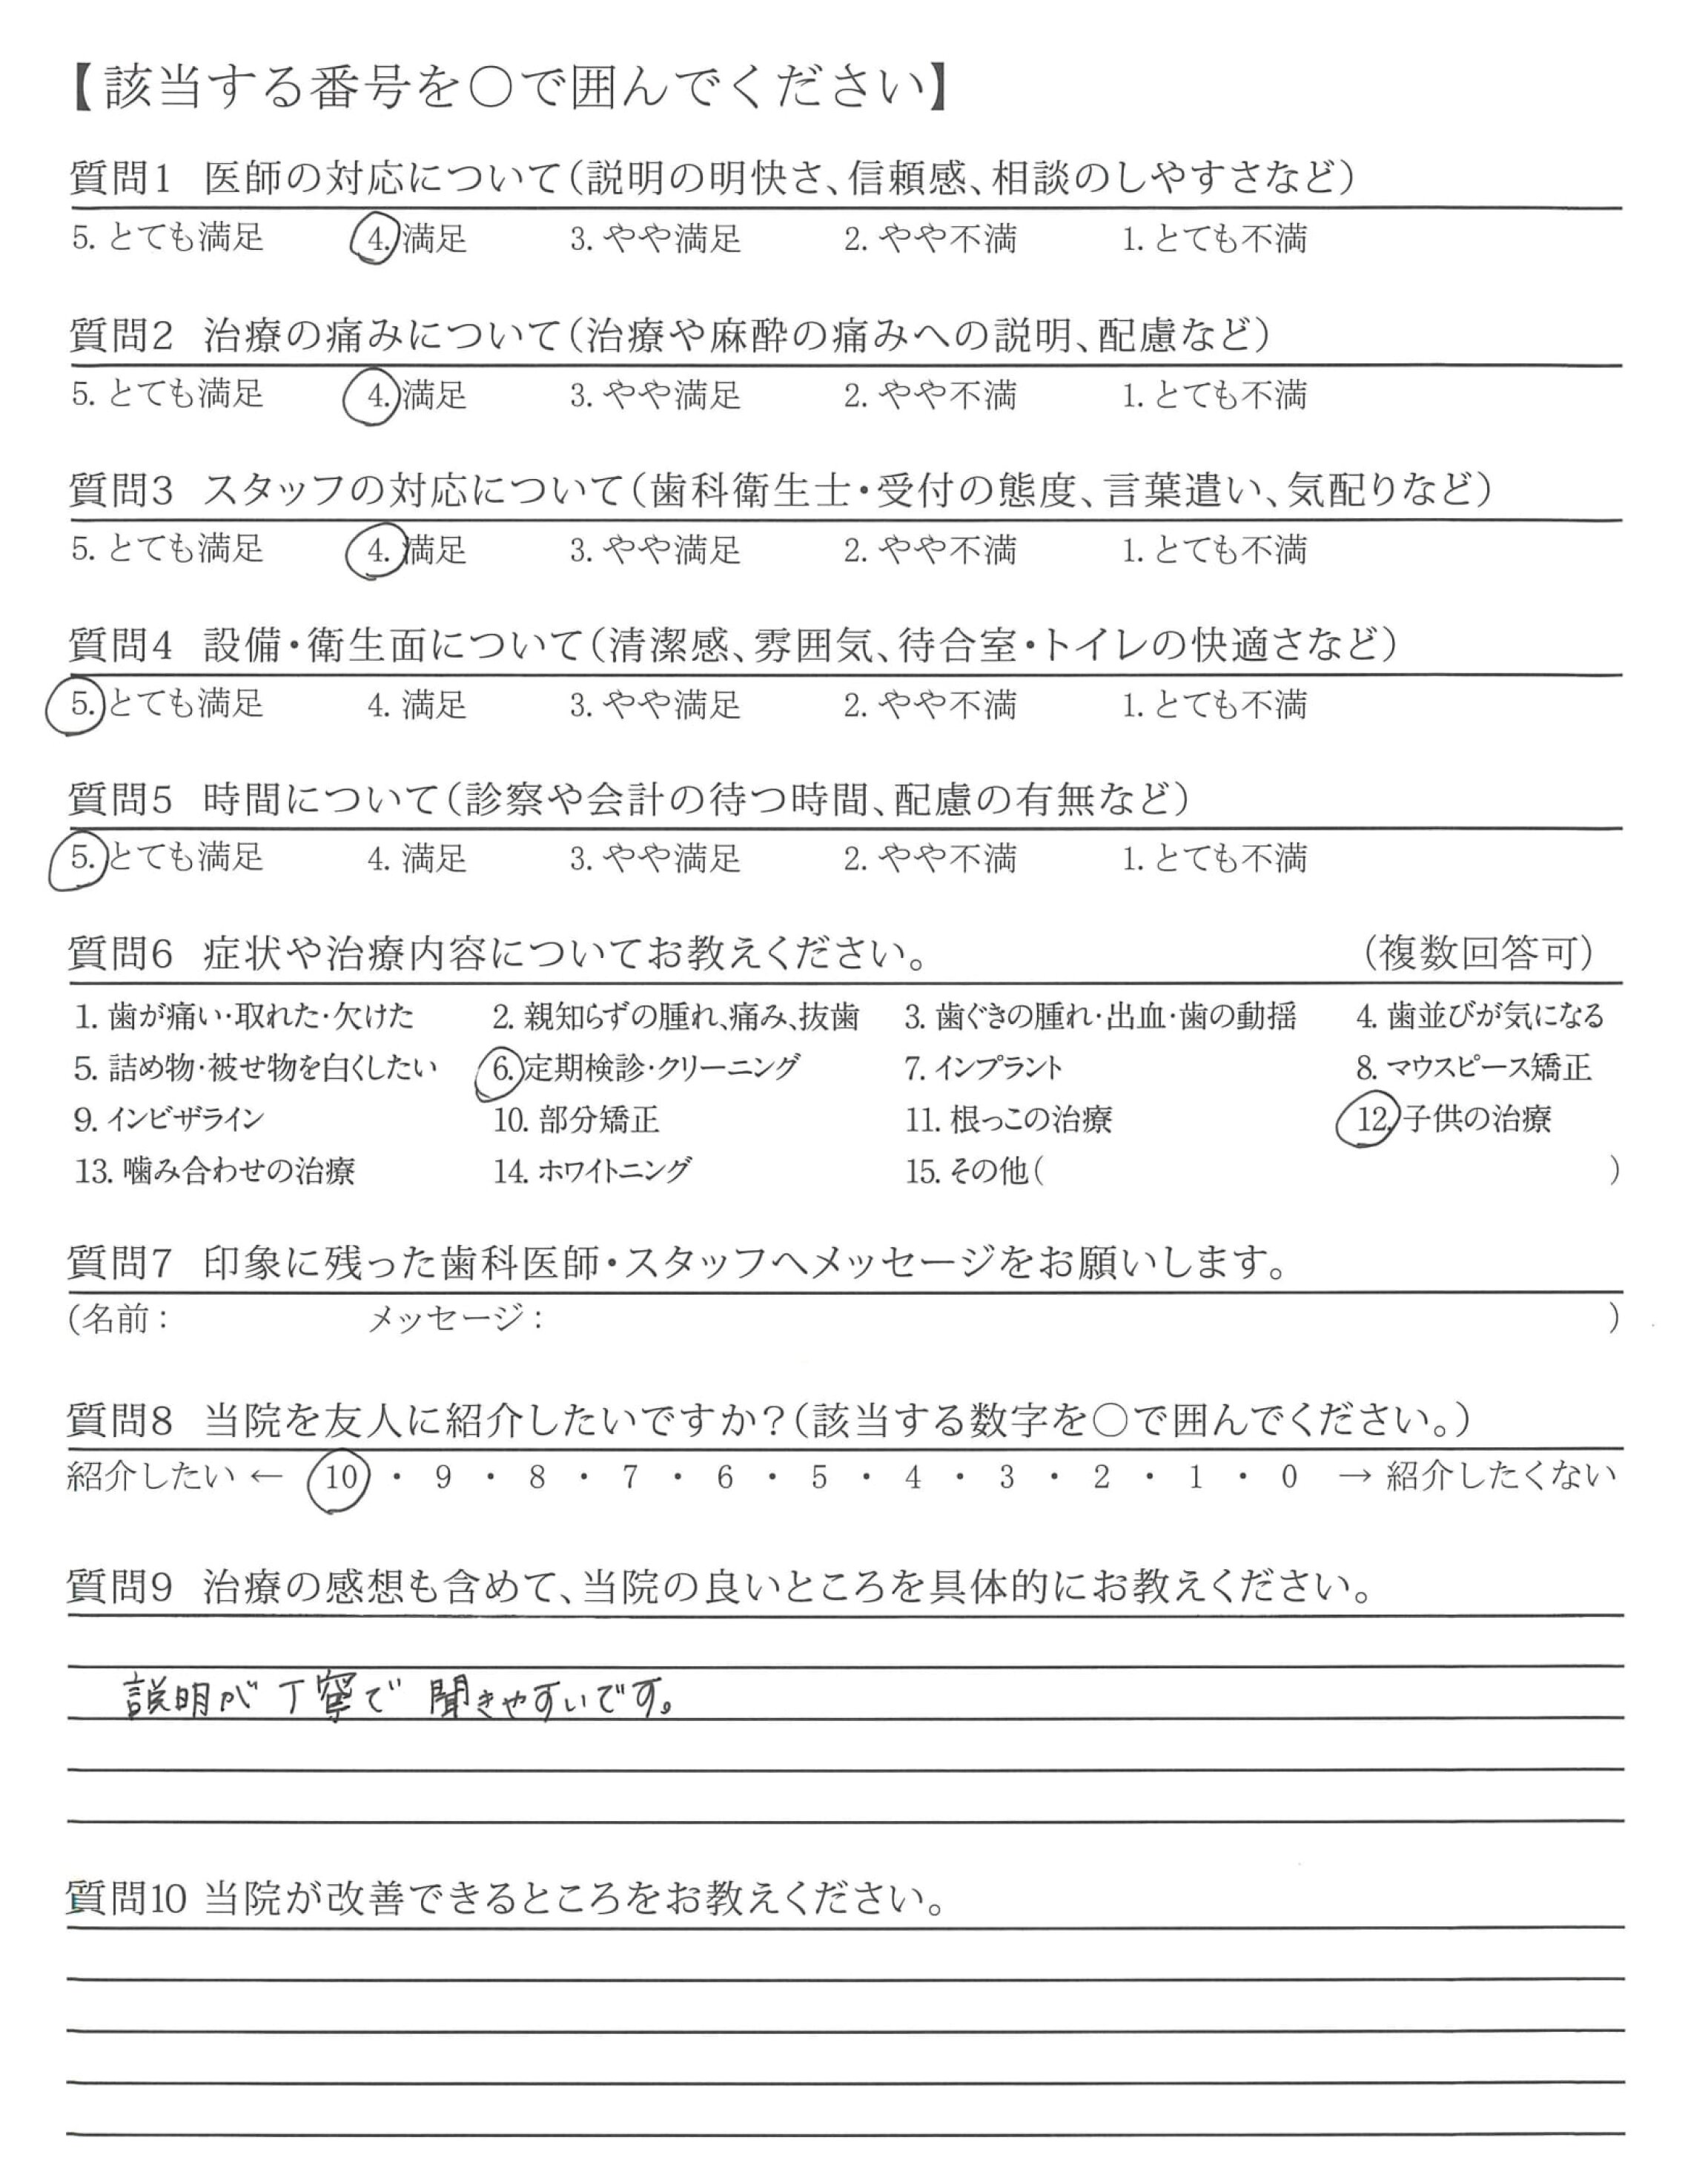 【該当する番号を○で囲んでください】
質問1 医師の対応について(説明の明快さ、信頼感、相談のしやすさなど)
5. とても満足 4. 満足 3. やや満足 2. やや不満 1. とても不満
質問2 治療の痛みについて(治療や麻酔の痛みへの説明、配慮など)
5. とても満足 4. 満足 3. やや満足 2. やや不満 1. とても不満
質問3 スタッフの対応について(歯科衛生士・受付の態度、言葉遣い、気配りなど)
5. とても満足 4. 満足 3. やや満足 2. やや不満 1. とても不満
質問4 設備・衛生面について(清潔感、雰囲気、待合室・トイレの快適さなど)
5. とても満足 4. 満足 3. やや満足 2. やや不満 1. とても不満
質問5 時間について(診察や会計の待つ時間、配慮の有無など)
5. とても満足 4. 満足 3. やや満足 2. やや不満 1. とても不満
質問6 症状や治療内容についてお教えください。 (複数回答可)
1. 歯が痛い・取れた・欠けた 2. 親知らずの腫れ、痛み、抜歯 3. 歯ぐきの腫れ・出血・歯の動揺 4. 歯並びが気になる
5. 詰め物・被せ物を白くしたい 6. 定期検診・クリーニング 7. インプラント 8. マウスピース矯正
9. インビザライン 10. 部分矯正 11. 根っこの治療 12. 子供の治療
13. 噛み合わせの治療 14. ホワイトニング 15. その他( )
質問7 印象に残った歯科医師・スタッフへメッセージをお願いします。
(名前： メッセージ： )
質問8 当院を友人に紹介したいですか？(該当する数字を○で囲んでください。)
紹介したい ← 10 ・ 9 ・ 8 ・ 7 ・ 6 ・ 5 ・ 4 ・ 3 ・ 2 ・ 1 ・ 0 → 紹介したくない
質問9 治療の感想も含めて、当院の良いところを具体的にお教えください。
説明が丁寧で 聞きやすいです。
質問10 当院が改善できるところをお教えください。